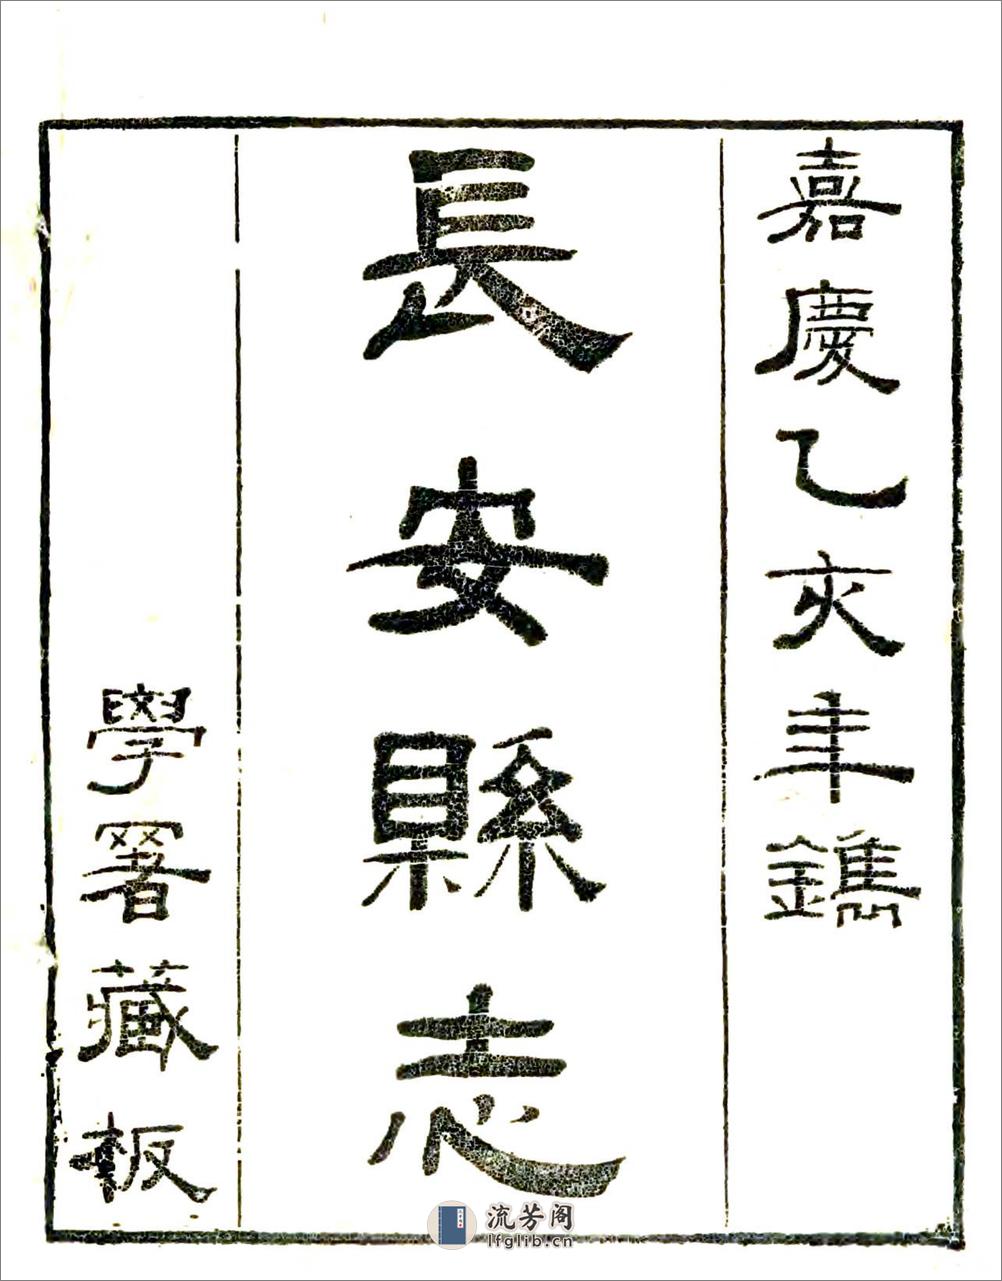 嘉慶乙亥年鐫
長安縣志
學署藏板
流芳阁
lfglib.cn